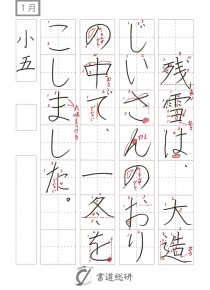 1月
残雪は、大造
じいさんのおり
の中で、一冬を
こしました。
小五
書道総研